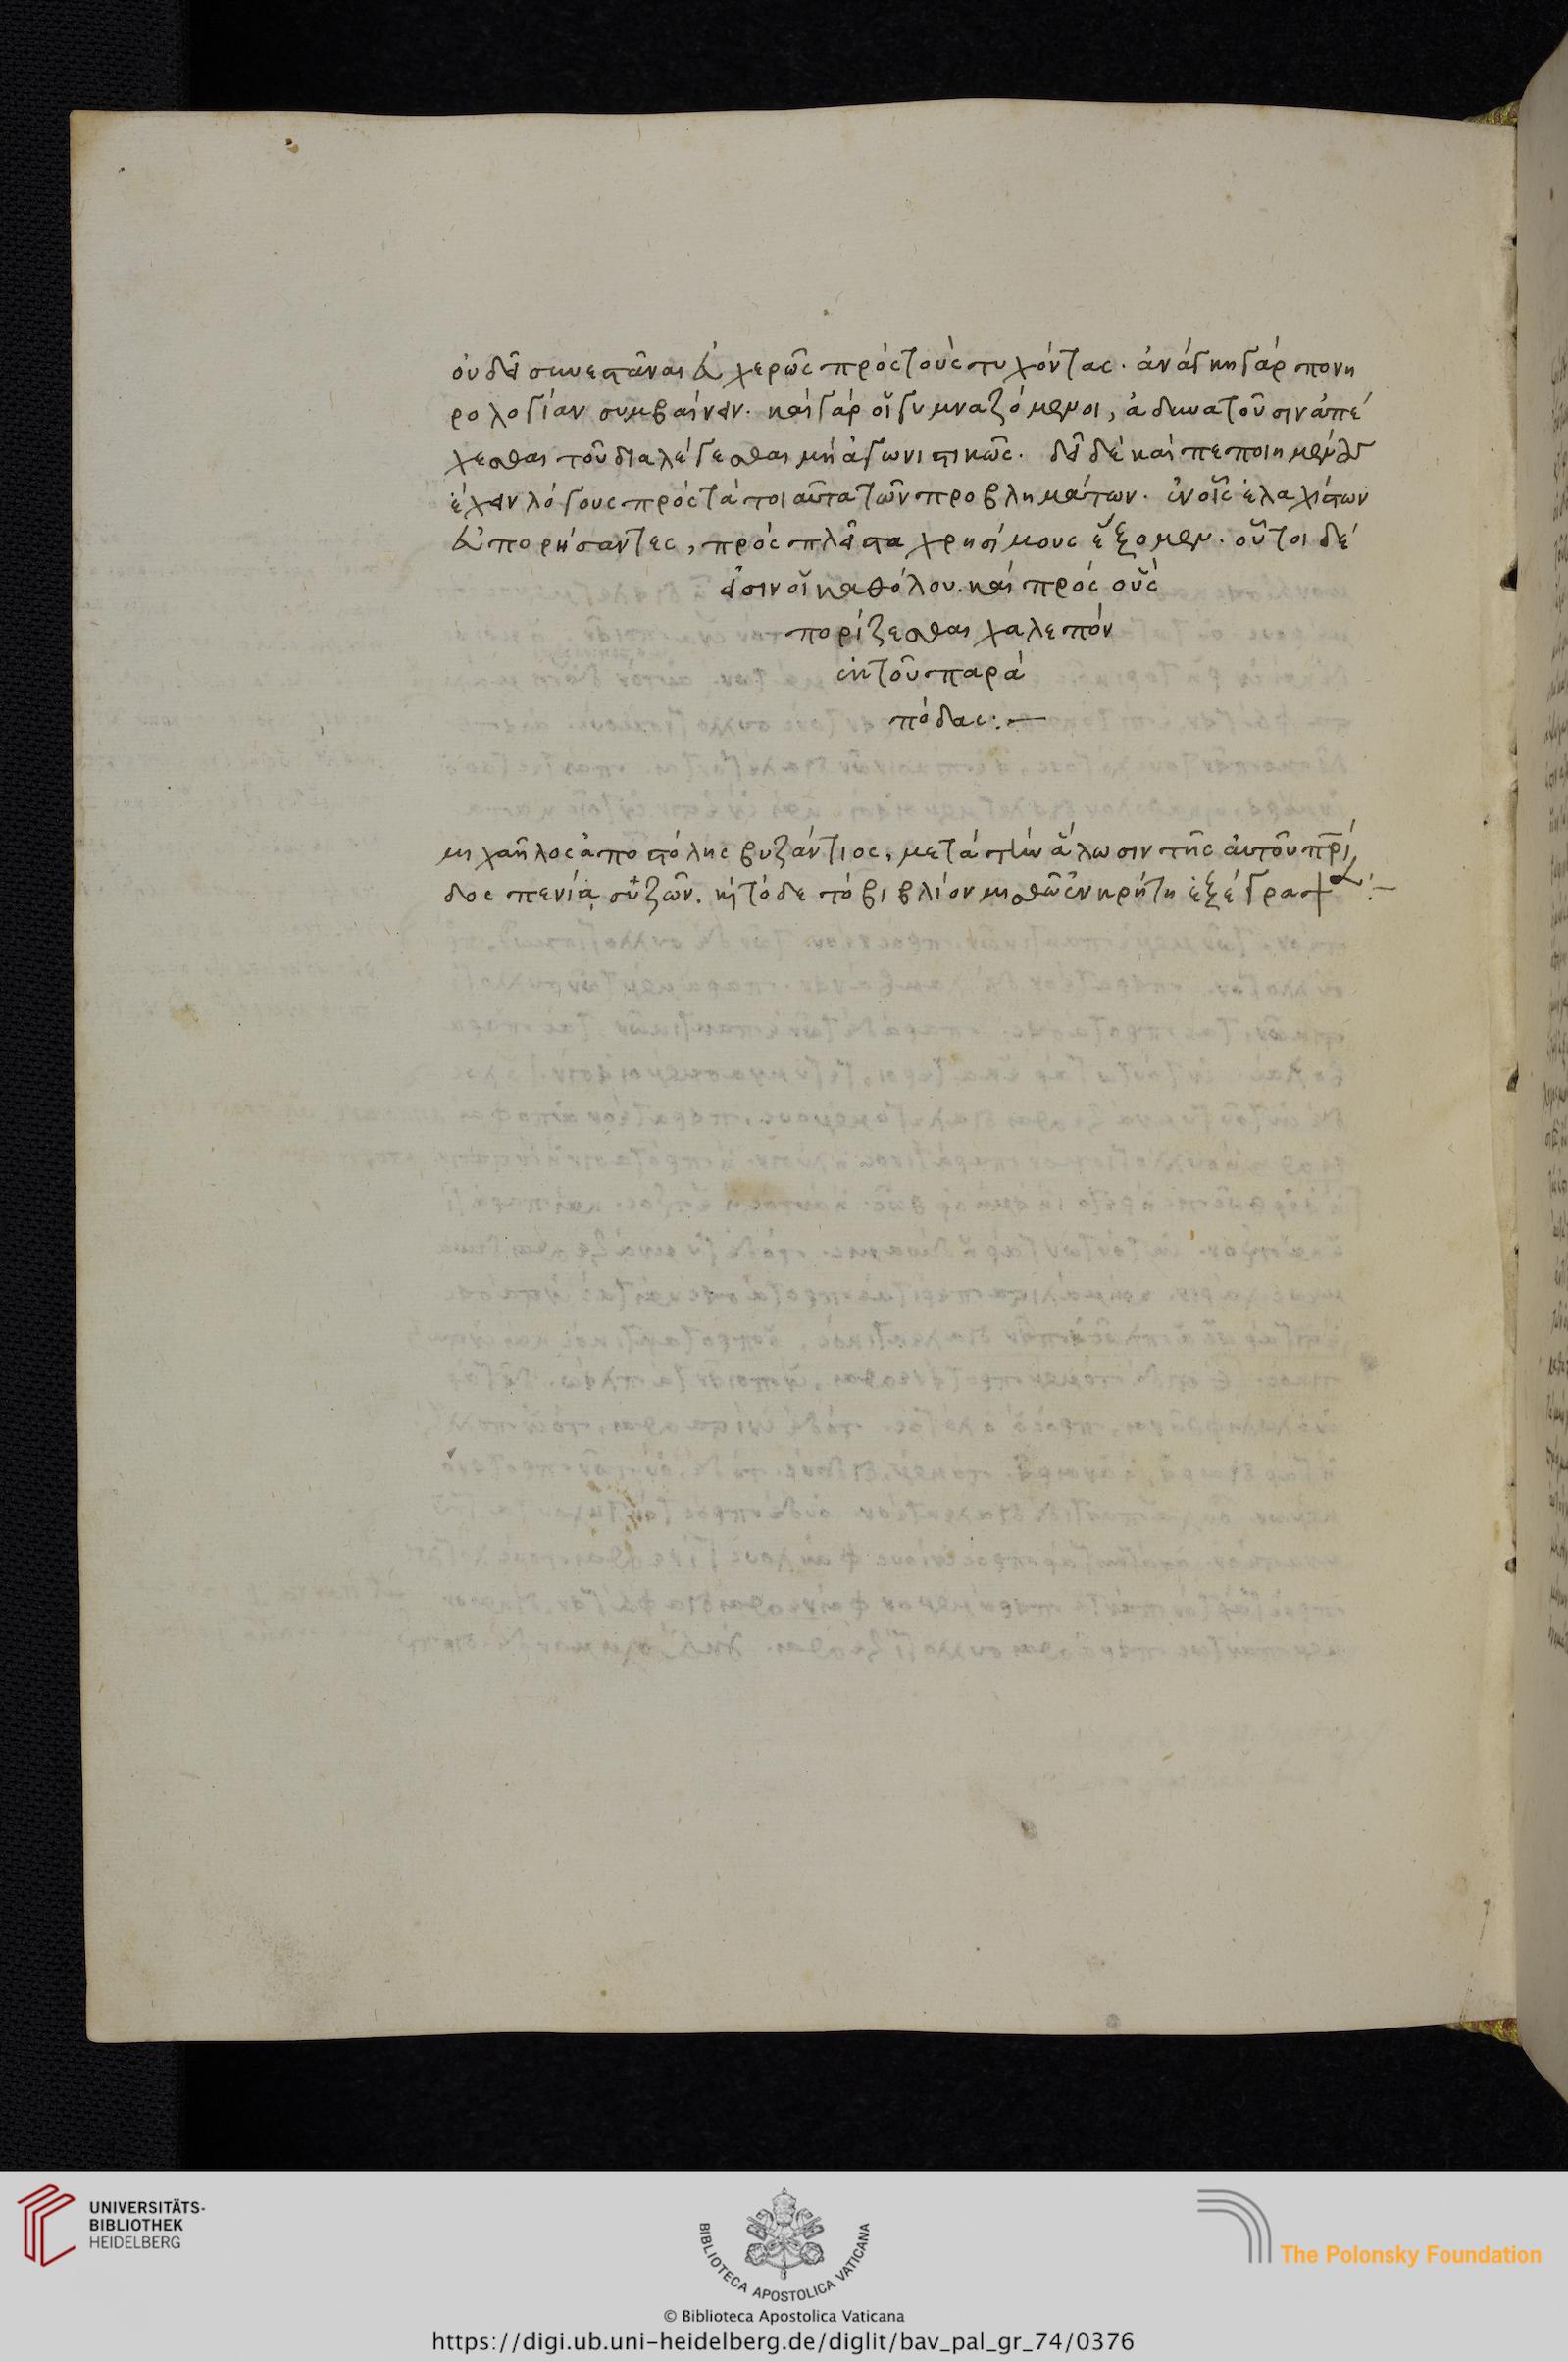 οὐ δεῖ συνεστάναι εὐχερῶς πρὸς τοὺς τυχόντας· ἀνάγκη γὰρ πονη
ρολογίαν συμβαίνειν· καὶ γὰρ οἱ γυμναζόμενοι, ἀδυνατοῦσιν ἀπέ
χεσθαι τοῦ διαλέγεσθαι μὴ ἀγωνιστικῶς. δεῖ δὲ καὶ πεποιημένους
ἔχειν λόγους πρὸς τὰ τοιαῦτα τῶν προβλημάτων· ἐν οἷς ἐλαχίστων
εὐπορήσαντες, πρὸς πλεῖστα χρησίμους ἕξομεν. οὗτοι δέ
εἰσιν οἱ καθόλου. καὶ πρὸς οὓς
πορίζεσθαι χαλεπὸν
ἐκ τοῦ παρὰ
πόδας:—
μιχαῆλος ἀποστόλης βυζάντιος, μετὰ τὴν ἅλωσιν τῆς αὐτοῦ πρί
δος πενίᾳ συζῶν. κ τόδε τὸ βιβλίον μισθῶ ἐν κρήτῃ ἐξέγραψεν:—
UNIVERSITÄTS-
BIBLIOTHEK
HEIDELBERG
BIBLIOTECA APOSTOLICA VATICANA
© Biblioteca Apostolica Vaticana
The Polonsky Foundation
https://digi.ub.uni-heidelberg.de/diglit/bav_pal_gr_74/0376